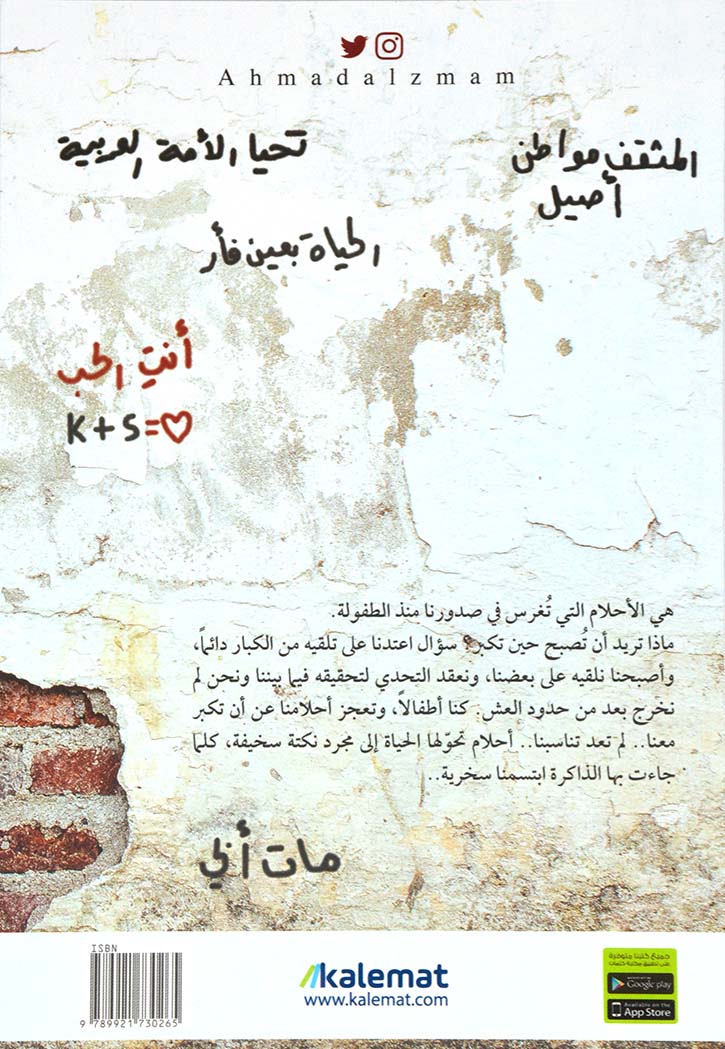 Ahmadalzmam
تحيا الأمة العربية
المثقف مواطن
أصيل
الحياة بعين فأر
أنتِ الحب
K+S=♡
هي الأحلام التي تُغرس في صدورنا منذ الطفولة.
ماذا تريد أن تُصبح حين تكبر؟ سؤال اعتدنا على تلقيه من الكبار دائماً،
وأصبحنا نلقيه على بعضنا، ونعقد التحدي لتحقيقه فيما بيننا ونحن لم
نخرج بعد من حدود العش. كنا أطفالاً، وتعجز أحلامنا عن أن تكبر
معنا.. لم تعد تناسبنا.. أحلام تحوّلها الحياة إلى مجرد نكتة سخيفة، كلما
جاءت بها الذاكرة ابتسمنا سخرية..
مات أبي
ISBN
9 789921 730265
kalemat
www.kalemat.com
جميع كتبنا متوفرة
على تطبيق مكتبة كلمات
Google play
Available on the
App Store